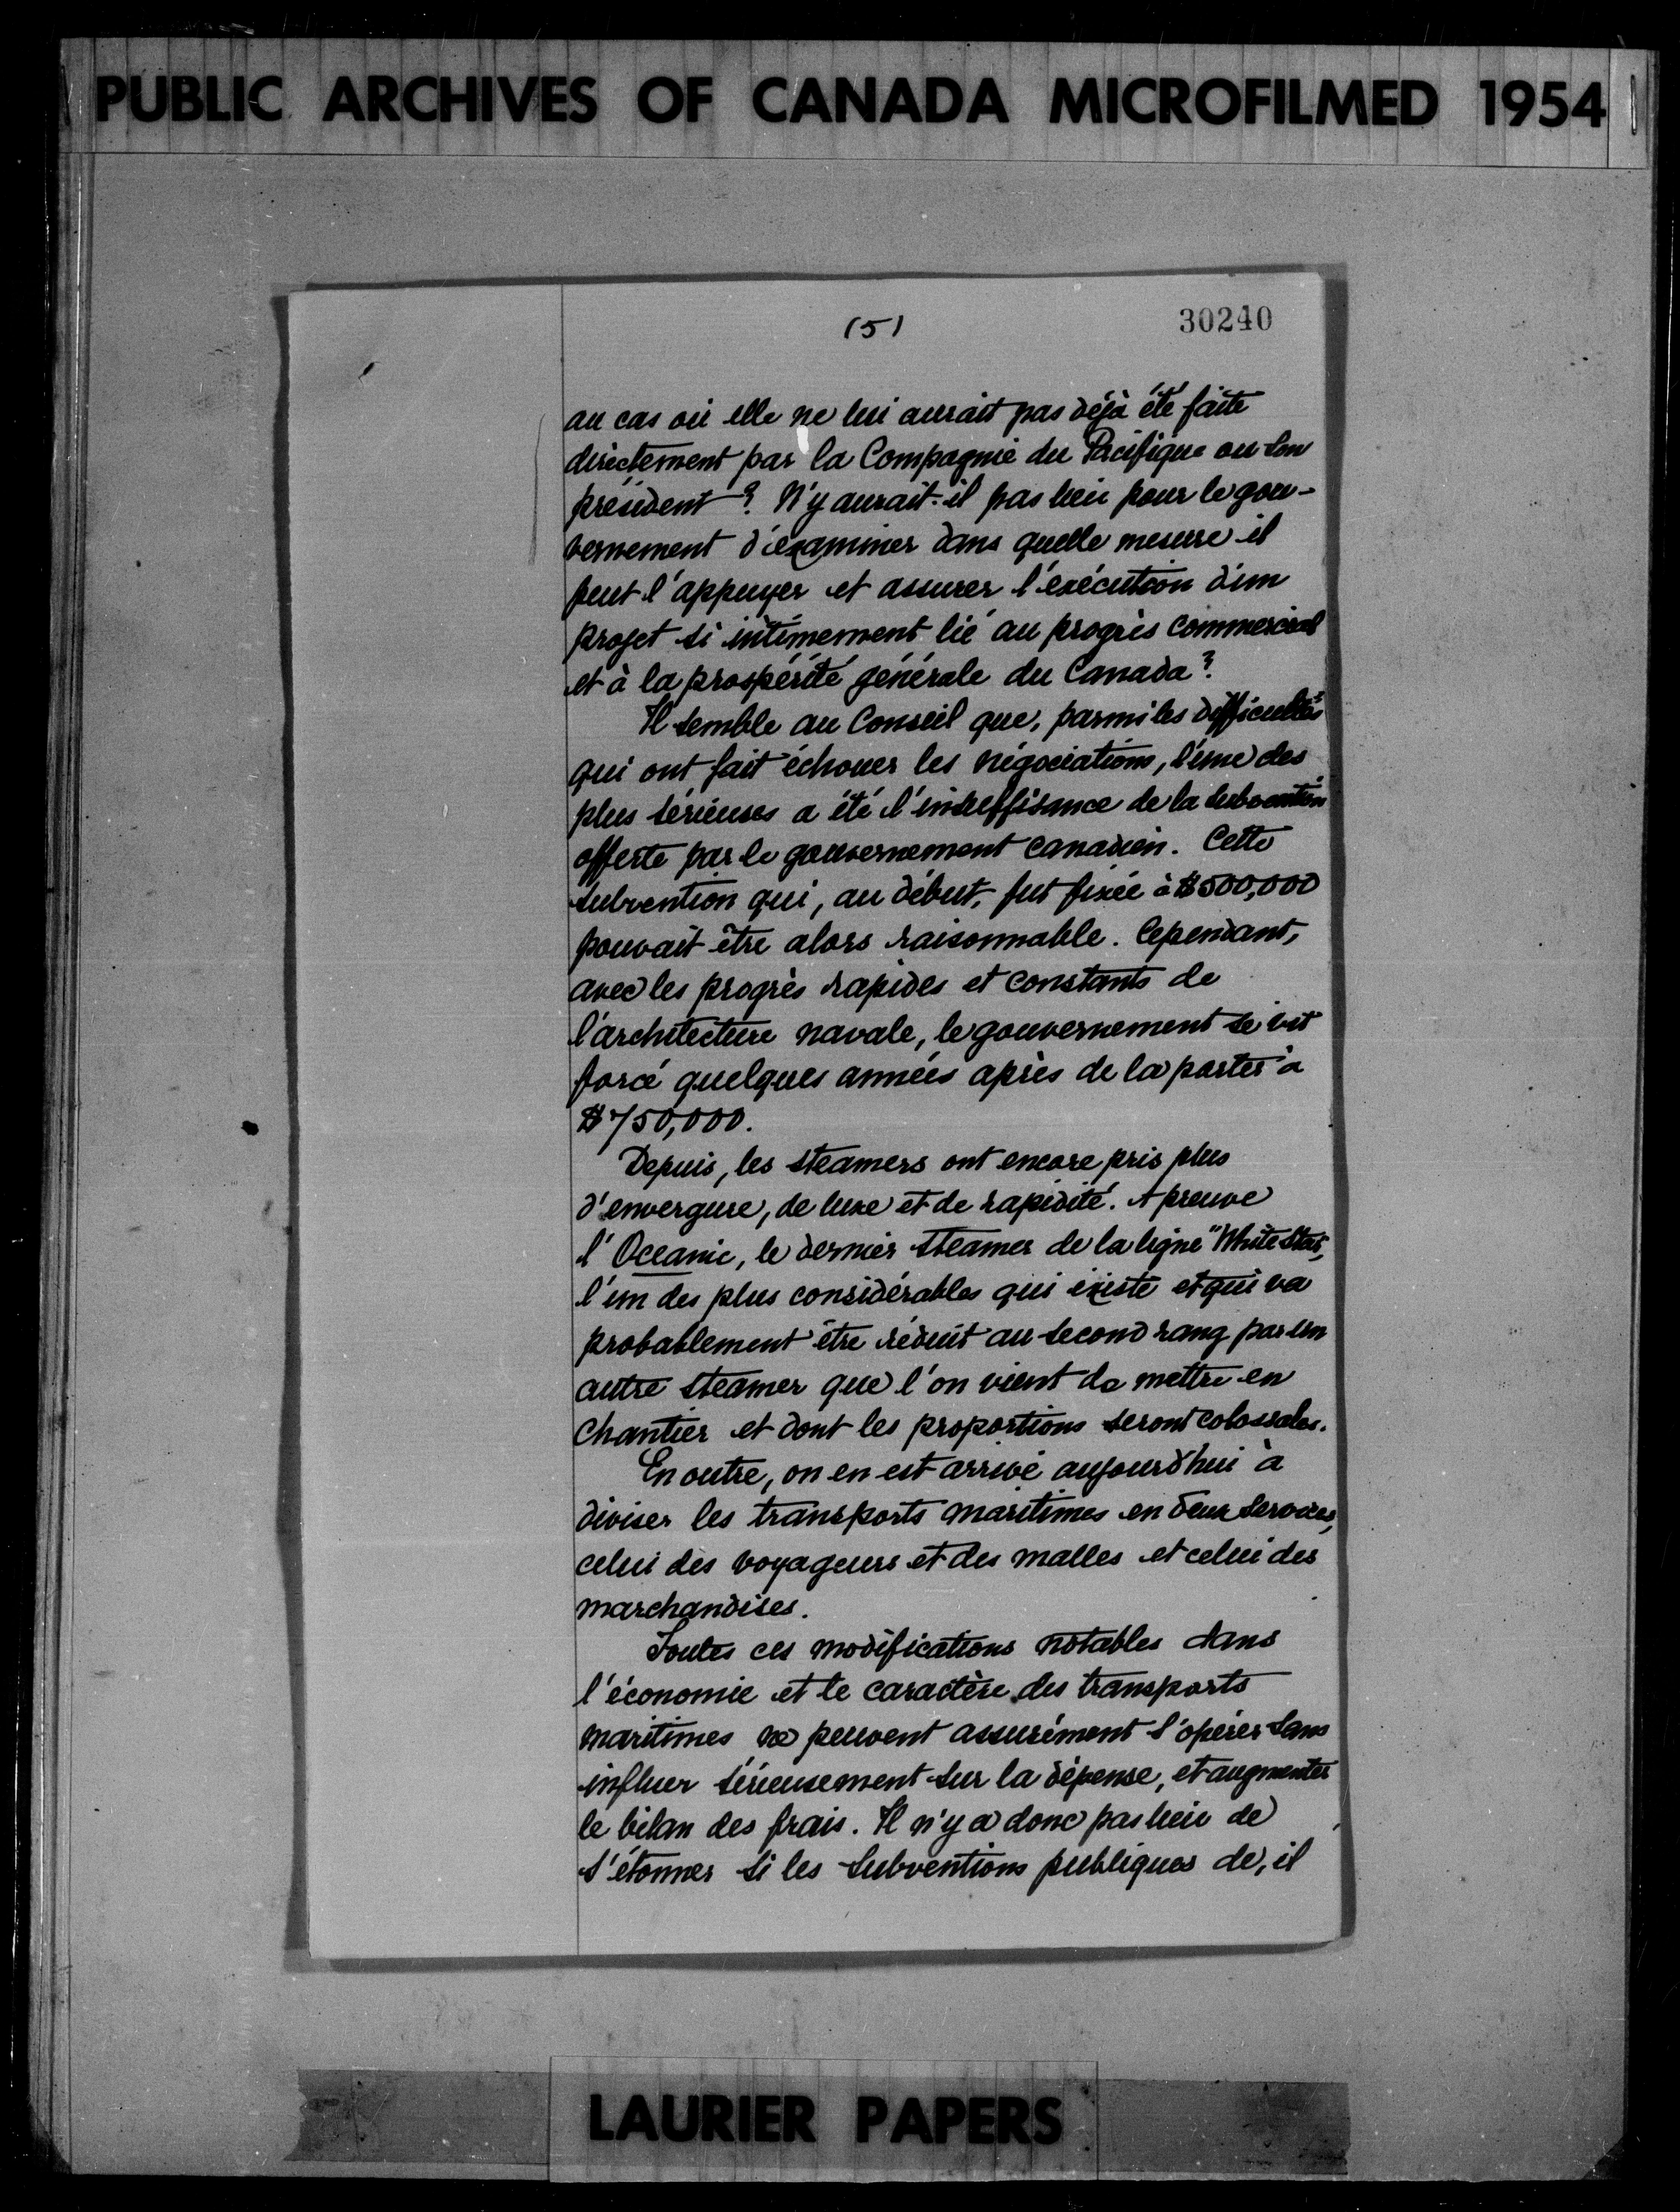 PUBLIC ARCHIVES OF CANADA MICROFILMED 1954
(5)
30240
au cas où elle ne lui aurait pas déjà été faite
directement par la Compagnie du Pacifique ou son
président? N'y aurait-il pas lieu pour le gou-
vernement d'examiner dans quelle mesure il
peut l'appuyer et assurer l'exécution d'un
projet si intimement lié au progrès commercial
et à la prospérité générale du Canada?
Il semble au Conseil que, parmi les difficultés
qui ont fait échouer les négociations, l'une des
plus sérieuses a été l'insuffisance de la subvention
offerte par le gouvernement canadien. Cette
subvention qui, au début, fut fixée à $500,000
pouvait être alors raisonnable. Cependant,
avec les progrès rapides et constants de
l'architecture navale, le gouvernement se vit
forcé quelques années après de la porter à
$750,000.
Depuis, les steamers ont encore pris plus
d'envergure, de luxe et de rapidité. A preuve
l'Oceanic, le dernier steamer de la ligne "White Star",
l'un des plus considérables qui existe et qui va
probablement être réduit au second rang par un
autre steamer que l'on vient de mettre en
chantier et dont les proportions seront colossales.
En outre, on en est arrivé aujourd'hui à
diviser les transports maritimes en deux services,
celui des voyageurs et des malles et celui des
marchandises.
Toutes ces modifications notables dans
l'économie et le caractère des transports
maritimes ne peuvent assurément s'opérer sans
influer sérieusement sur la dépense, et augmenter
le bilan des frais. Il n'y a donc pas lieu de
s'étonner si les subventions publiques de, il
LAURIER PAPERS